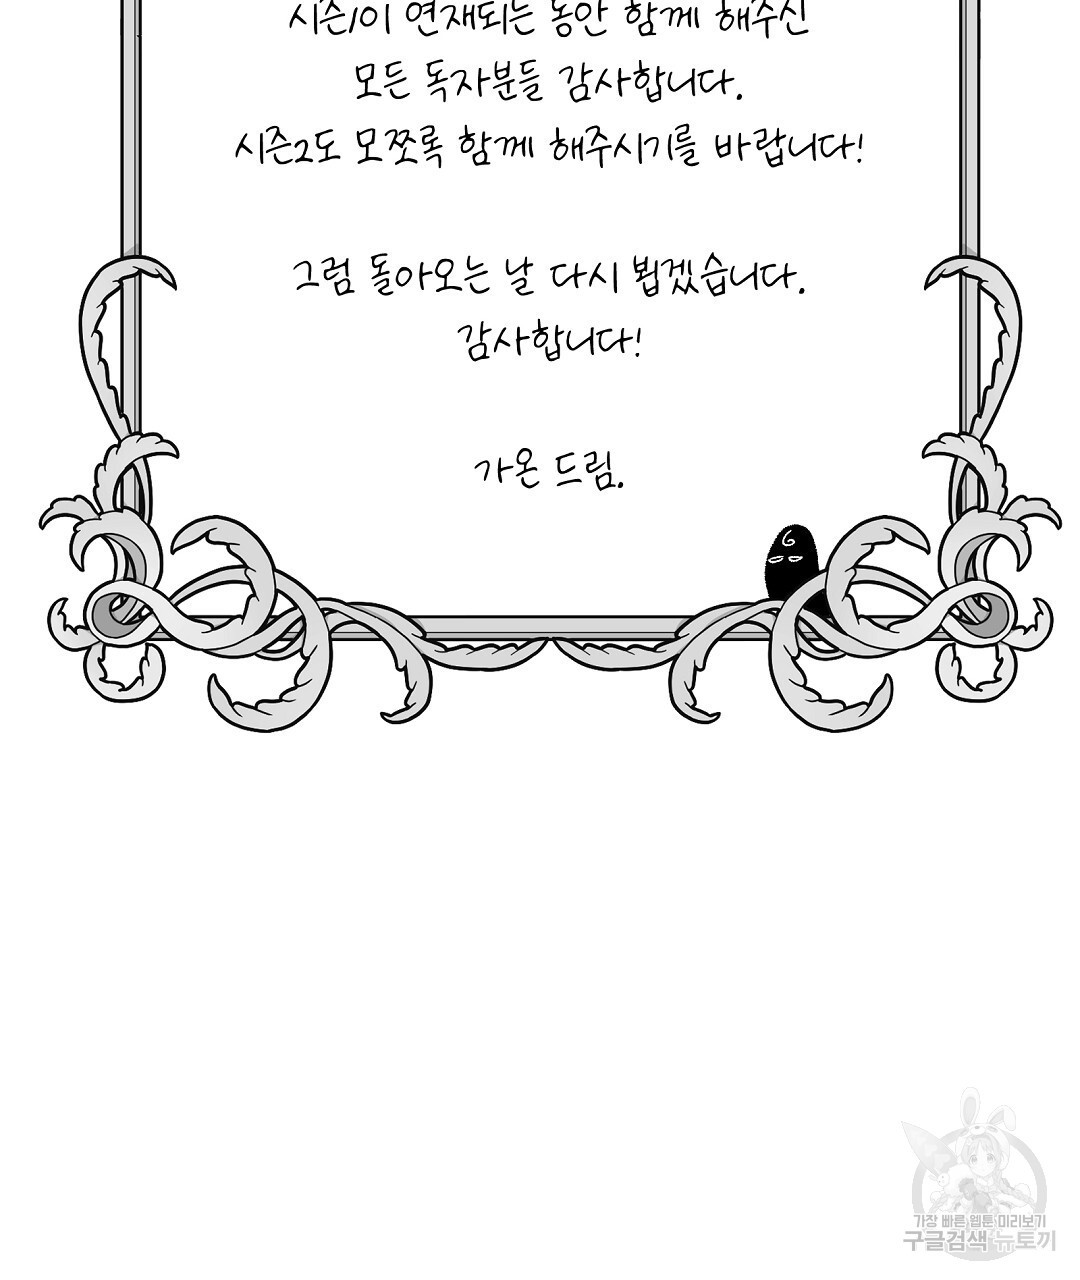 시즌1이 연재되는 동안 함께 해주신
모든 독자분들 감사합니다.
시즌2도 모쪼록 함께 해주시기를 바랍니다!
그럼 돌아오는 날 다시 뵙겠습니다.
감사합니다!
가온 드림.
가장 빠른 웹툰 미리보기
구글검색 뉴토끼